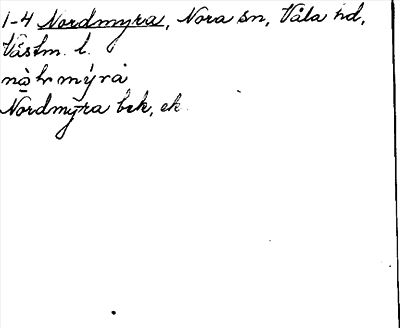 1-4 Nordmyra, Nora sn, Våla hd,
Västm. l.
Nordmyra bek, ek.